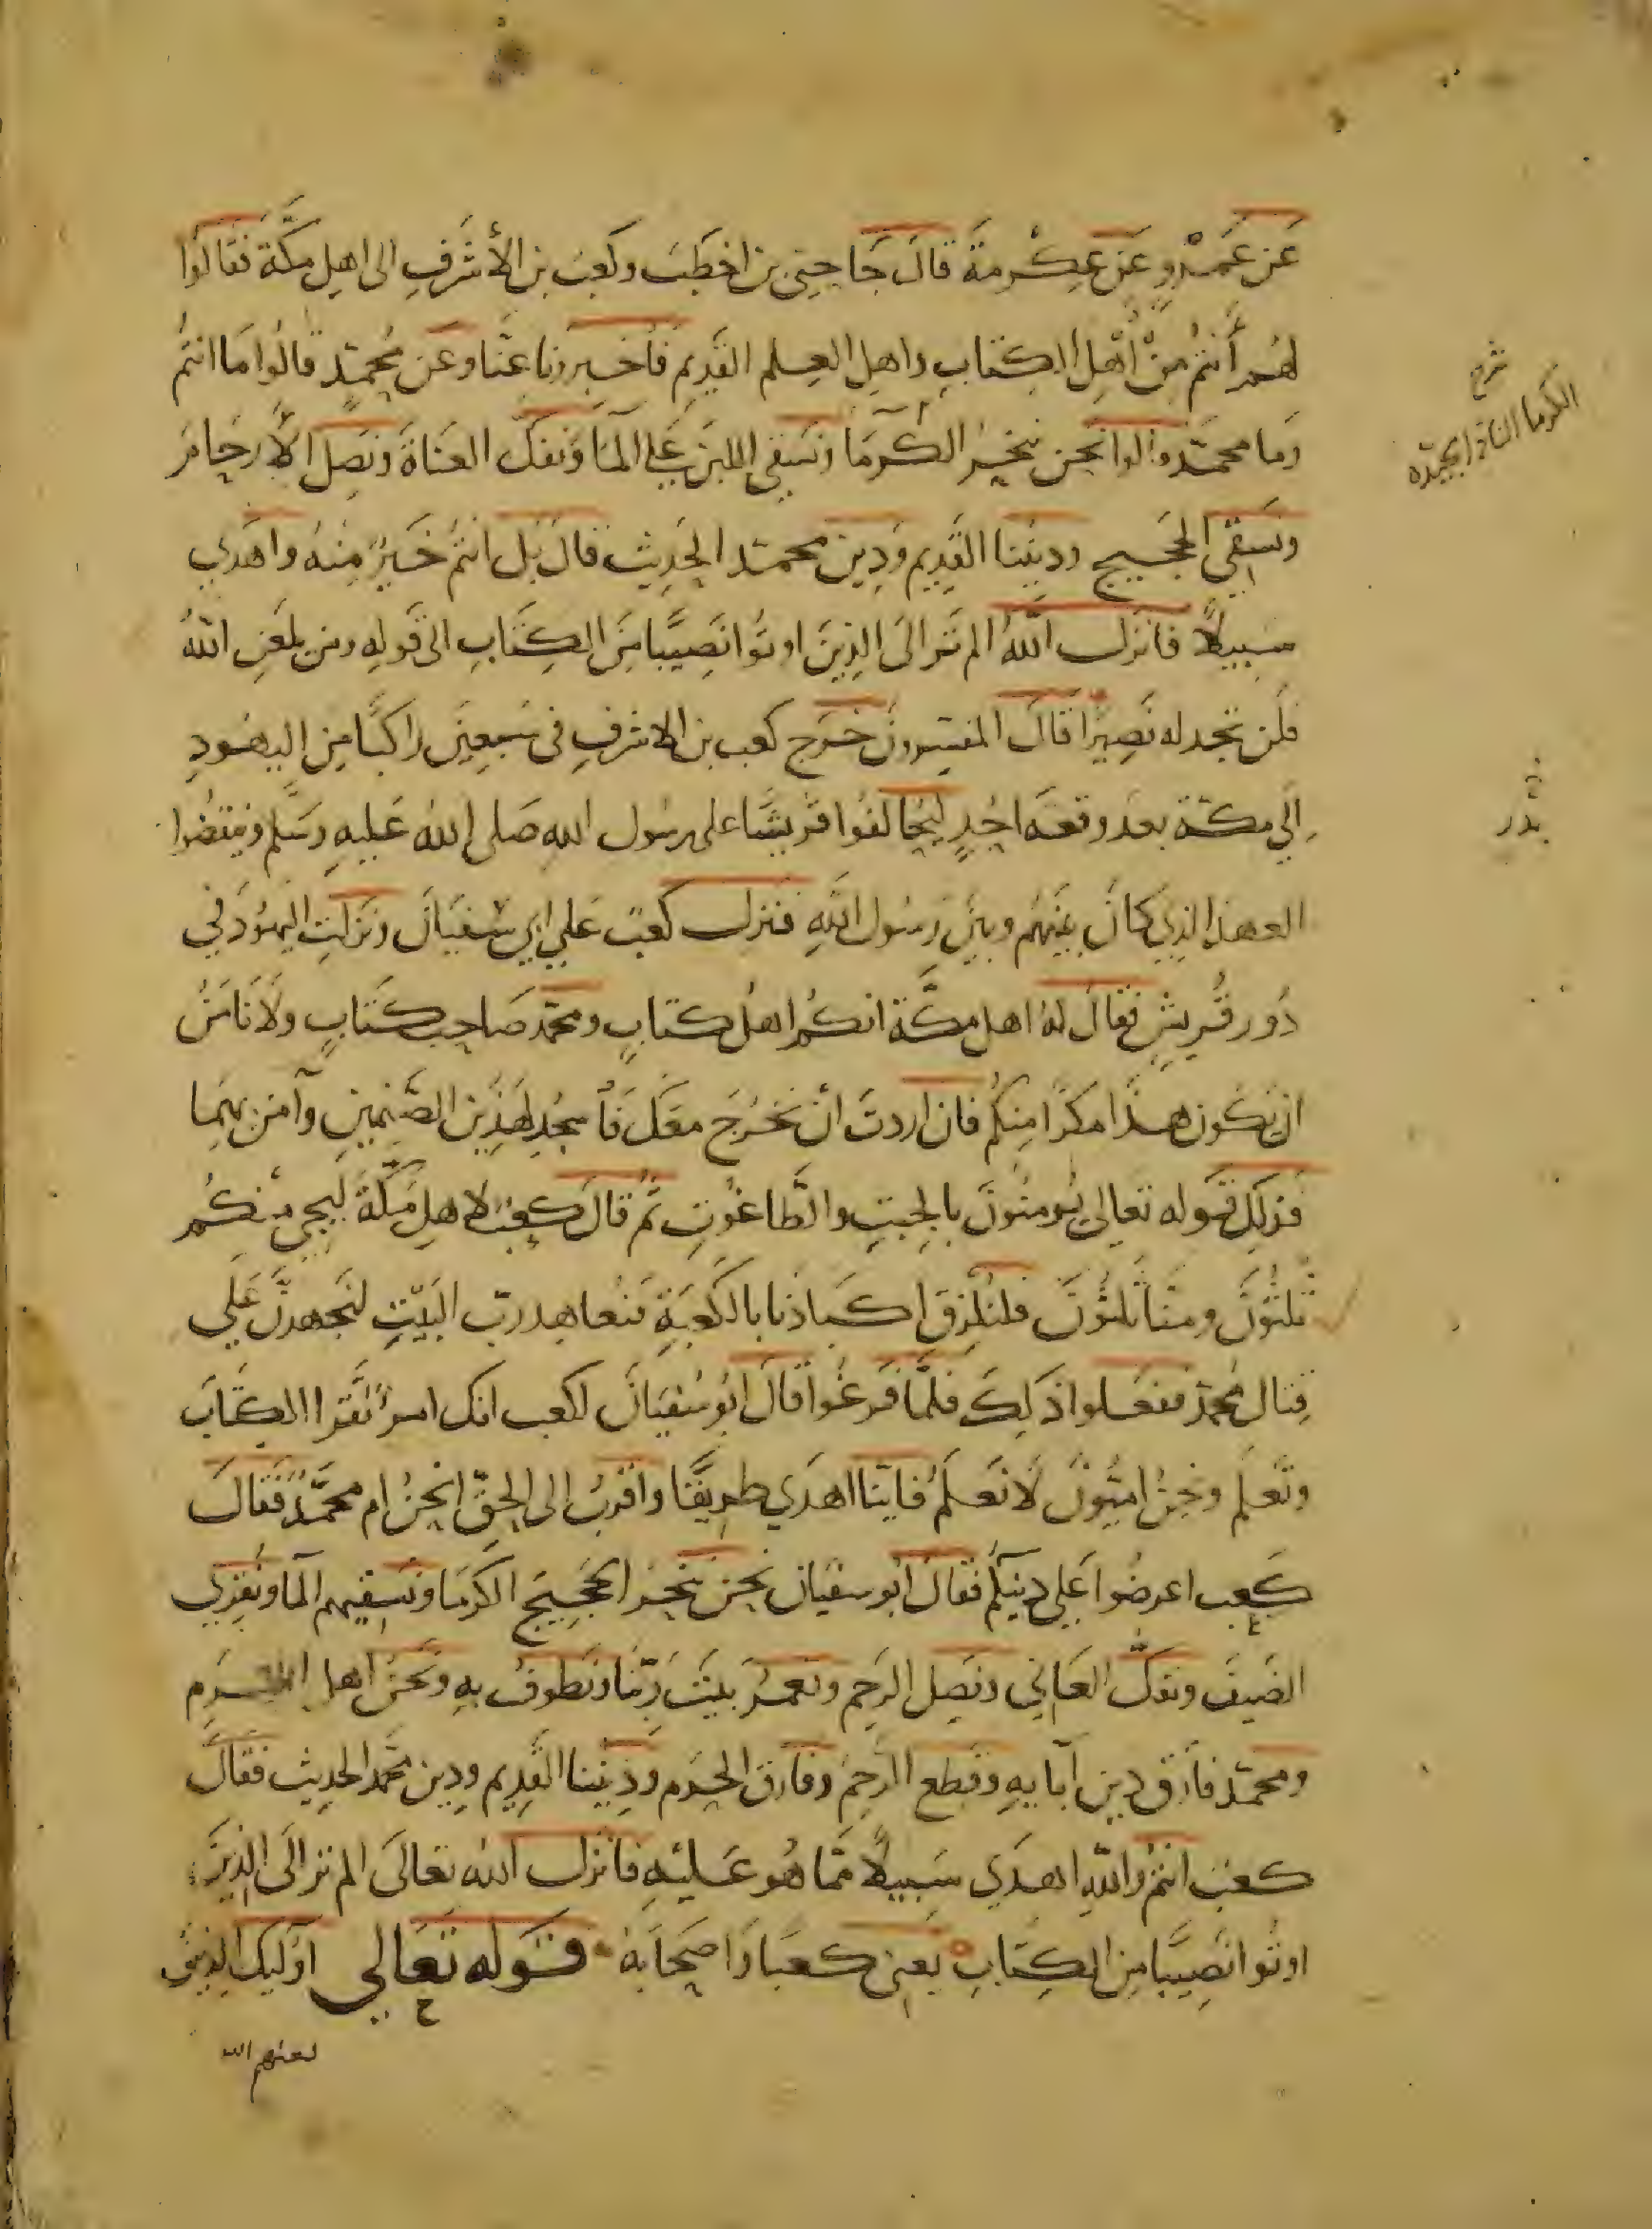 عَن عَمْرٍو عَن عِكْرمةَ قالَ جَا حيى بن اخطَبَ وكَعبُ بن الأشرَفِ الى اهلِ مكَّة فقالوا
لهُم أنتُم مِنْ أهْلِ الكِتَابِ واهلِ العِلم القَدِيم فَاخبِرونا عنَّا وعَن مُحمدٍ قالُوا مَا انتُم
وَما محمدٌ قالوا نحن ننحَرُ الكَوْمَا ونَسقِى اللبَن عَلى المَا ونَفكّ العنَاةَ ونَصِلُ الأرحَامَ
ونَسقى الحجيج ودِينُنا القَدِيم ودِين محمد الحَدِيث قال بَل انتُم خَيرٌ مِنهُ واهدَي
سَبيلًا فانزل اللهُ الم تَر الَى الذينَ اوتوا نَصِيبًا مِنَ الكِتَابِ الى قَولِه ومن يلعَنِ اللهُ
فلَن تجد له نَصِيرًا قالَ المفسِرونَ خَرَج كعب بن الاشرفِ فى سَبعِينَ راكبًا مِن اليهُودِ
الَى مكة بعد وقعَه احُدٍ ليُحَالفُوا قرَيشًا على رسُول الله صَلى اللهُ عَليهِ وسَلم وينقضُوا
العهدَ الذِي كانَ بينَهُم وبينَ رسُول اللهِ فنزل كعبٌ عَلى ابى سُفيَانَ ونَزلتِ اليَهُودُ فى
دُور قُريشٍ فقال لهُ اهل مكَّة انكُم اهلُ كتابٍ ومحمد صَاحِب كتَابٍ ولَا نَامَنُ
ان يَكون هذَا مكرًا مِنكُم فان اردتَ انْ نَخرُجَ معَكَ فَاسجُد لِهَذَينِ الصَّنَمينِ وآمن بهِمَا
فَذلِكَ قَوله تعالى يُومنُونَ بالجِبتِ والطَّاغُوتِ ثمُ قالَ كعبٌ لاهلِ مَكَّةَ لِيَجِى منكُم
ثَلثُونَ ومنَّا ثَلثُونَ فلنُلزِق اكبَادنا بالكَعبَةِ فنُعاهِد ربّ البَيتِ لنَجهدَنَّ عَلى
قِتال مُحمد ففعَلوا ذَلِكَ فلمَّا فَرغُوا قالَ ابُو سُفيَانَ لكعب انك امرؤ تَقرا الكتَابَ
وتَعلَم ونحنُ امِّيُونَ لَا نَعلَمُ فايّنا اهدَي طرِيقًا واقرَبُ الى الحقّ انحنُ ام محمَّدٌ فقال
كعب اعرضُوا عَلى دينكُم فقالَ ابُو سفيَان نحن ننحرُ للحَجِيجِ الكَومَا ونَسقيهم المَا ونُقرِي
الضَيفَ ونفكّ العَانِي ونَصِل الرَحِم ونعمُر بيتَ ربِّنَا ونَطوفُ بهِ ونَحنُ اهل الحَرَمِ
ومحمد فارَق دِين آبايهِ وقطع الرَّحِمَ وفارَق الحَرَم ودِينُنا القَدِيم ودِين محمد الحَدِيث فقالَ
كعبٌ انتم واللهِ اهدَي سَبِيلًا ممَّا هُو عَليهِ فانزل الله تعالَى الم تر الَى الذِينَ
اوتُوا نَصِيبًا مِن الكِتَابِ يَعنى كعبًا واصحَابَهُ قَوله تَعَالى اوليك الذِينَ
لعنهم الله
شرح
بَدر